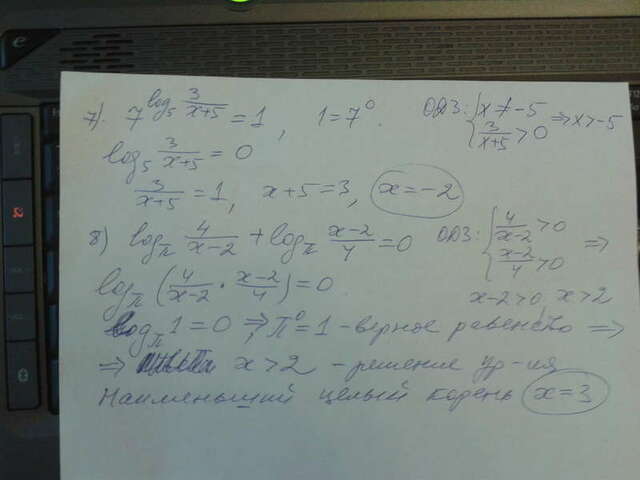 7). 7^{log_5 \frac{3}{x+5}} = 1, 1 = 7^0. ОДЗ: {x ≠ -5 \frac{3}{x+5} > 0 ⇒ x > -5
log_5 \frac{3}{x+5} = 0
\frac{3}{x+5} = 1, x+5 = 3, x = -2
8) log_π \frac{4}{x-2} + log_π \frac{x-2}{4} = 0 ОДЗ: {\frac{4}{x-2} > 0 \frac{x-2}{4} > 0 ⇒
log_π (\frac{4}{x-2} · \frac{x-2}{4}) = 0. x-2 > 0, x > 2
log_π 1 = 0 ⇒, π^0 = 1 - верное равенство ⇒
⇒ x > 2 - решение ур-ия
Наименьший целый корень x = 3